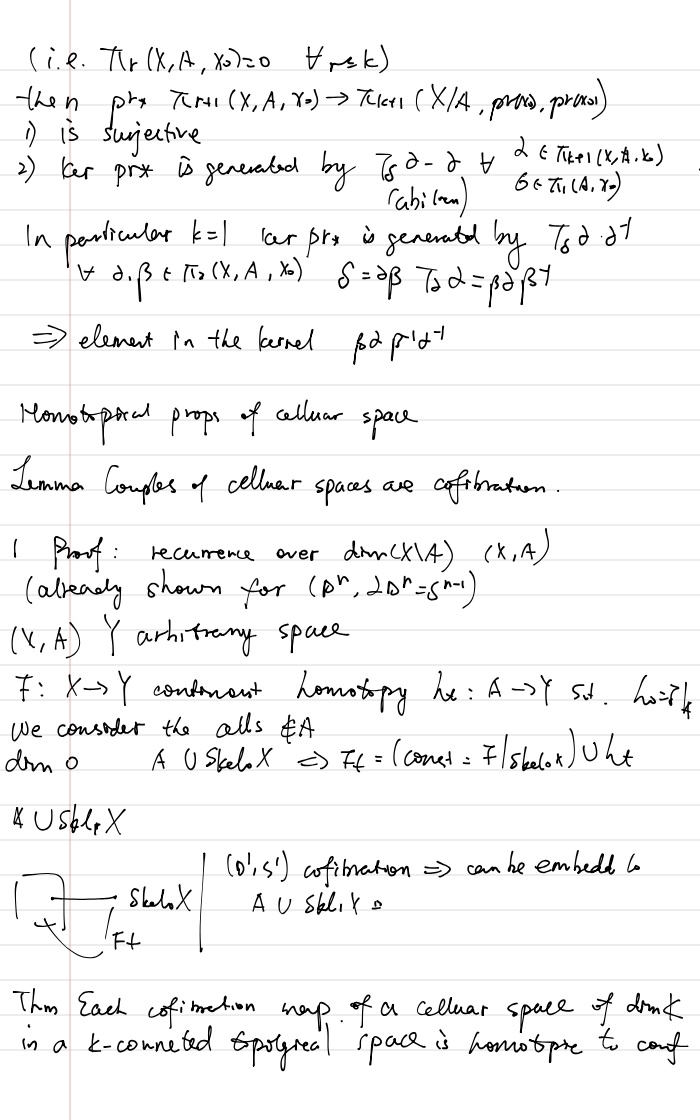 (i.e. πr (X, A, x₀)=0 ∀ r≤k)
then pr* πk+1 (X, A, x₀) → πk+1 (X/A, pr(x₀), pr(x₀))
1) is surjective
2) ker pr* is generated by Tδ ∂ - ∂ ∀ α ∈ πk+1(X, A, x₀)
(abilian) δ ∈ π1(A, x₀)
In particular k=1 ker pr* is generated by Tδ ∂ · ∂⁻¹
∀ ∂, β ∈ π₂(X, A, x₀) δ = ∂β T∂ α = β∂β⁻¹
⇒ element in the kernel β∂β⁻¹∂⁻¹
Homotopical props of celluar space
Lemma Couples of celluar spaces are cofibration.
Proof: recurrence over dim(X\A) (X, A)
(already shown for (Dⁿ, ∂Dⁿ=Sⁿ⁻¹)
(X, A) Y arbitrary space
F: X→Y continuous homotopy ht: A→Y s.t. h₀=F|A
We consider the cells ∉A
dim 0 A ∪ Skel₀X ⇒ Ft = (const = F|skel₀x) ∪ ht
A ∪ Skel₁X
(D¹, S¹) cofibration ⇒ can be embedd to
Skel₀X A ∪ Skl₁X
Ft
Thm Each cofibration map of a celluar space of dim k
in a k-conneted space is homotopic to const